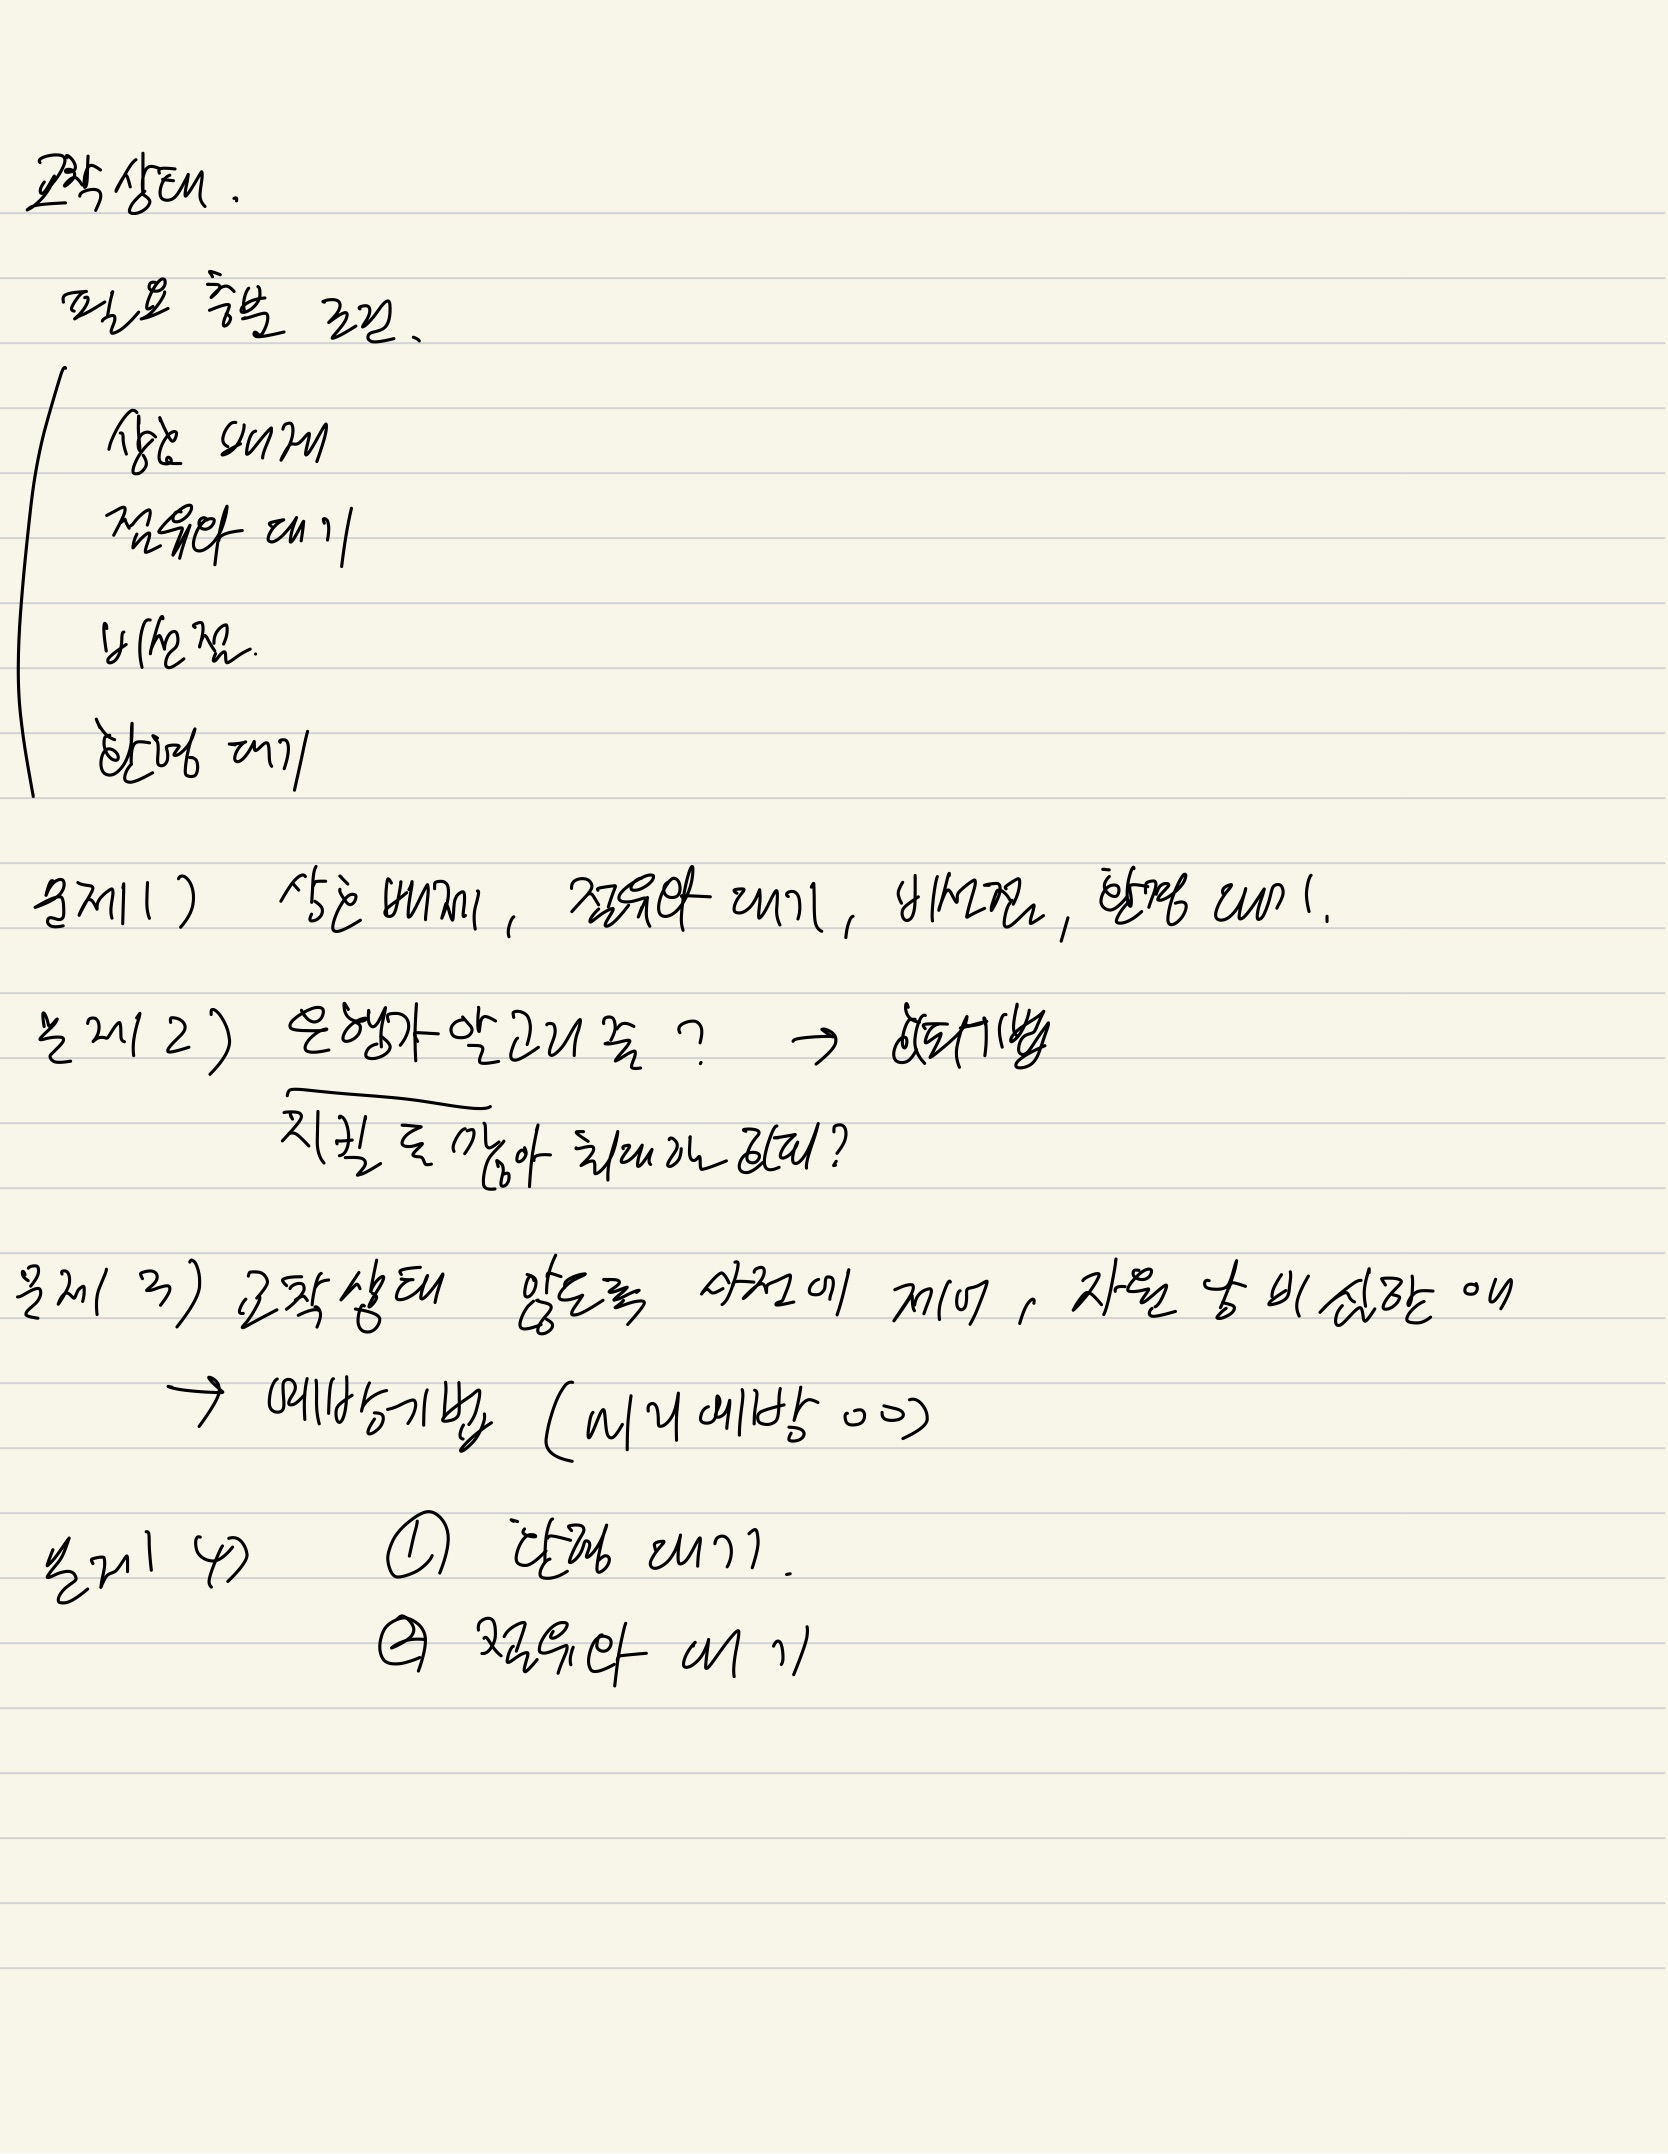 교착상태.
필요 충분 조건.
상호 배제
점유와 대기
비선점.
환형 대기
문제1) 상호 배제, 점유와 대기, 비선점, 환형 대기.
문제2) 은행가 알고리즘? → 회피기법
회피?
문제3) 교착상태 않도록 사전에 제어, 자원 낭비 심한 애
→ 예방기법 (미리 예방 ㅇㅇ)
문제4) ① 환형 대기.
② 점유와 대기